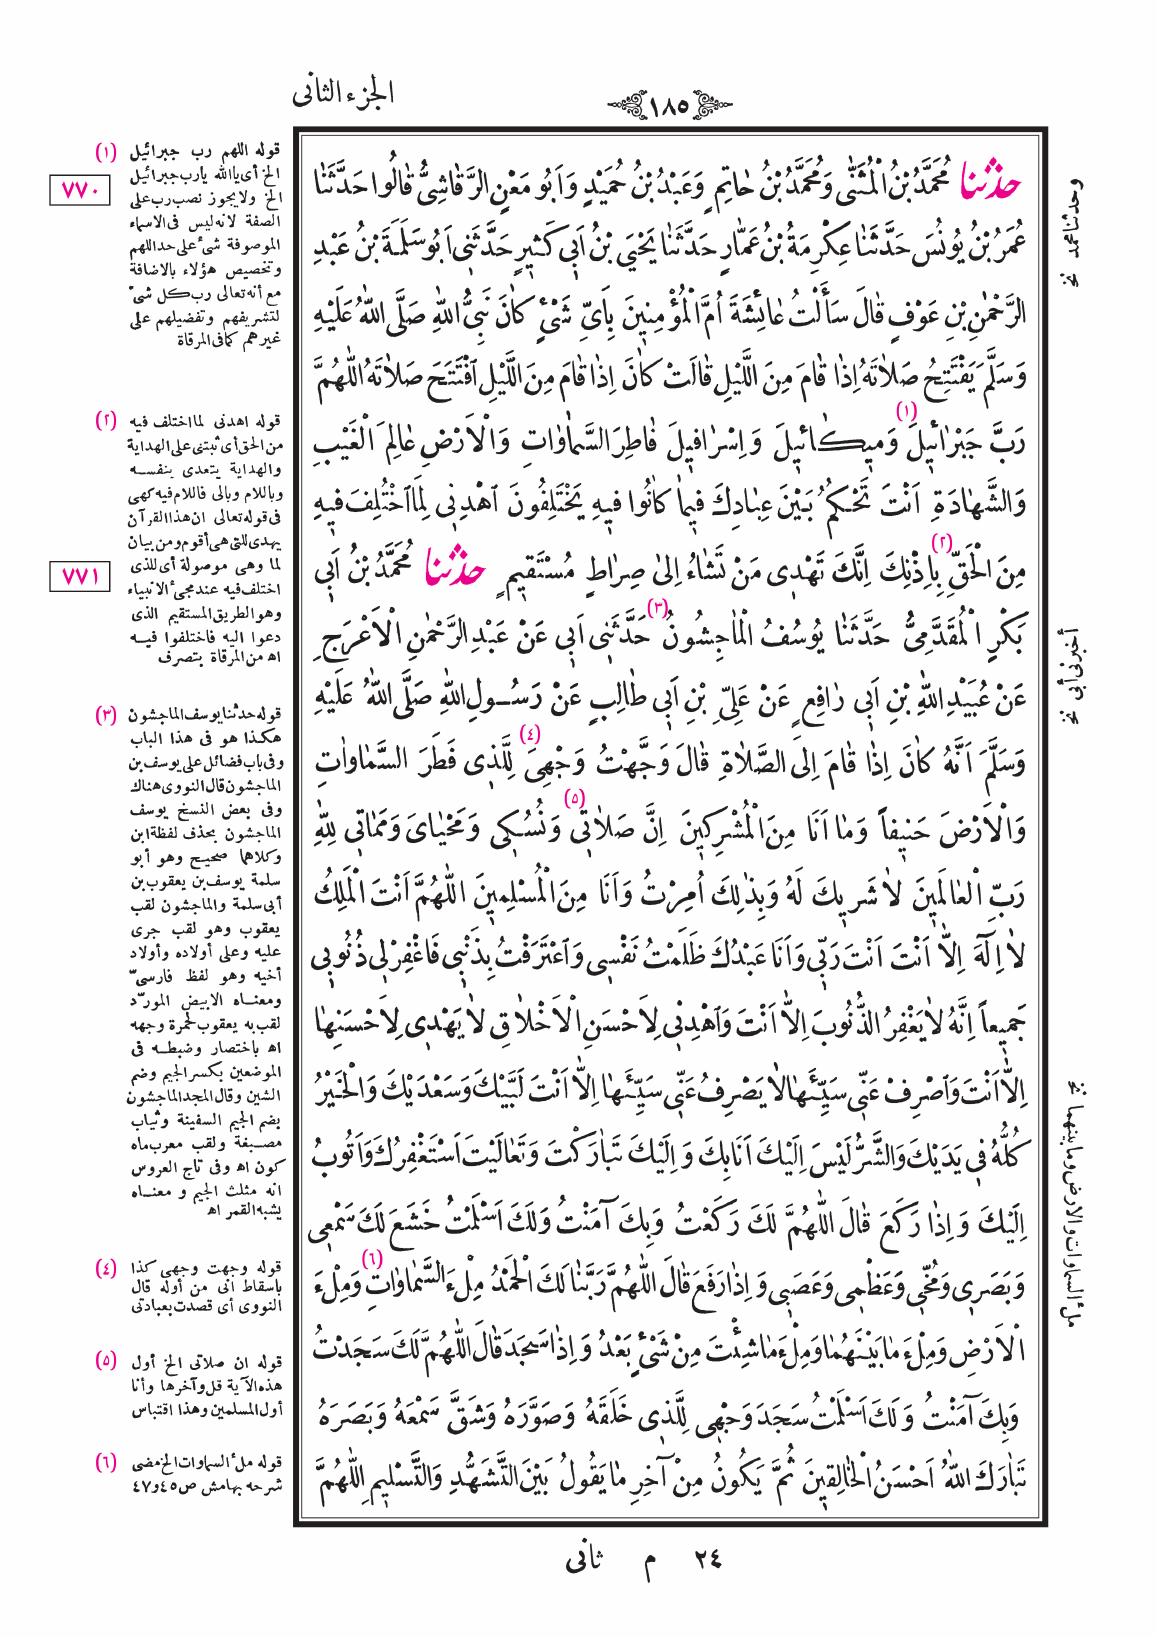 الجزء الثانى
١٨٥
حدثنا مُحَمَّدُ بْنُ الْمُثَنّٰى وَمُحَمَّدُ بْنُ حَاتِمٍ وَعَبْدُ بْنُ حُمَيْدٍ وَاَبُو مَعْنٍ الرَّقَاشِىُّ قَالُوا حَدَّثَنَا
عُمَرُ بْنُ يُونُسَ حَدَّثَنَا عِكْرِمَةُ بْنُ عَمَّارٍ حَدَّثَنَا يَحْيَى بْنُ اَبِى كَثِيرٍ حَدَّثَنِى اَبُو سَلَمَةَ بْنُ عَبْدِ
الرَّحْمٰنِ بْنِ عَوْفٍ قَالَ سَأَلْتُ عَائِشَةَ اُمَّ الْمُؤْمِنِينَ بِاَىِّ شَىْءٍ كَانَ نَبِىُّ اللهِ صَلَّى اللهُ عَلَيْهِ
وَسَلَّمَ يَفْتَتِحُ صَلَاتَهُ اِذَا قَامَ مِنَ اللَّيْلِ قَالَتْ كَانَ اِذَا قَامَ مِنَ اللَّيْلِ اَفْتَتَحَ صَلَاتَهُ اللّٰهُمَّ
رَبَّ جَبْرَائِيلَ (١) وَمِيكَائِيلَ وَاِسْرَافِيلَ فَاطِرَ السَّمَاوَاتِ وَالْاَرْضِ عَالِمَ الْغَيْبِ
وَالشَّهَادَةِ اَنْتَ تَحْكُمُ بَيْنَ عِبَادِكَ فِيمَا كَانُوا فِيهِ يَخْتَلِفُونَ اَهْدِنِى لِمَا اخْتُلِفَ فِيهِ
مِنَ الْحَقِّ بِاِذْنِكَ (٢) اِنَّكَ تَهْدِى مَنْ تَشَاءُ اِلىٰ صِرَاطٍ مُسْتَقِيمٍ حدثنا مُحَمَّدُ بْنُ اَبِى
بَكْرٍ الْمُقَدَّمِىُّ حَدَّثَنَا يُوسُفُ الْمَاجِشُونُ (٣) حَدَّثَنِى اَبِى عَنْ عَبْدِ الرَّحْمٰنِ الْاَعْرَجِ
عَنْ عُبَيْدِ اللهِ بْنِ اَبِى رَافِعٍ عَنْ عَلِىِّ بْنِ اَبِى طَالِبٍ عَنْ رَسُولِ اللهِ صَلَّى اللهُ عَلَيْهِ
وَسَلَّمَ اَنَّهُ كَانَ اِذَا قَامَ اِلَى الصَّلَاةِ قَالَ وَجَّهْتُ وَجْهِىَ (٤) لِلَّذِى فَطَرَ السَّمَاوَاتِ
وَالْاَرْضَ حَنِيفاً وَمَا اَنَا مِنَ الْمُشْرِكِينَ اِنَّ صَلَاتِى (٥) وَنُسُكِى وَمَحْيَاىَ وَمَمَاتِى لِلّٰهِ
رَبِّ الْعَالَمِينَ لَا شَرِيكَ لَهُ وَبِذٰلِكَ اُمِرْتُ وَاَنَا مِنَ الْمُسْلِمِينَ اللّٰهُمَّ اَنْتَ الْمَلِكُ
لَا اِلٰهَ اِلَّا اَنْتَ اَنْتَ رَبِّى وَاَنَا عَبْدُكَ ظَلَمْتُ نَفْسِى وَاعْتَرَفْتُ بِذَنْبِى فَاغْفِرْ لِى ذُنُوبِى
جَمِيعاً اِنَّهُ لَا يَغْفِرُ الذُّنُوبَ اِلَّا اَنْتَ وَاهْدِنِى لِاَحْسَنِ الْاَخْلَاقِ لَا يَهْدِى لِاَحْسَنِهَا
اِلَّا اَنْتَ وَاصْرِفْ عَنِّى سَيِّئَهَا لَا يَصْرِفُ عَنِّى سَيِّئَهَا اِلَّا اَنْتَ لَبَّيْكَ وَسَعْدَيْكَ وَالْخَيْرُ
كُلُّهُ فِى يَدَيْكَ وَالشَّرُّ لَيْسَ اِلَيْكَ اَنَا بِكَ وَاِلَيْكَ تَبَارَكْتَ وَتَعَالَيْتَ اَسْتَغْفِرُكَ وَاَتُوبُ
اِلَيْكَ وَاِذَا رَكَعَ قَالَ اللّٰهُمَّ لَكَ رَكَعْتُ وَبِكَ آمَنْتُ وَلَكَ اَسْلَمْتُ خَشَعَ لَكَ سَمْعِى
وَبَصَرِى وَمُخِّى وَعَظْمِى وَعَصَبِى وَاِذَا رَفَعَ قَالَ اللّٰهُمَّ رَبَّنَا لَكَ الْحَمْدُ مِلْءَ السَّمَاوَاتِ (٦) وَمِلْءَ
الْاَرْضِ وَمِلْءَ مَا بَيْنَهُمَا وَمِلْءَ مَا شِئْتَ مِنْ شَىْءٍ بَعْدُ وَاِذَا سَجَدَ قَالَ اللّٰهُمَّ لَكَ سَجَدْتُ
وَبِكَ آمَنْتُ وَلَكَ اَسْلَمْتُ سَجَدَ وَجْهِى لِلَّذِى خَلَقَهُ وَصَوَّرَهُ وَشَقَّ سَمْعَهُ وَبَصَرَهُ
تَبَارَكَ اللهُ اَحْسَنُ الْخَالِقِينَ ثُمَّ يَكُونُ مِنْ آخِرِ مَا يَقُولُ بَيْنَ التَّشَهُّدِ وَالتَّسْلِيمِ اللّٰهُمَّ
وحدثنا محمد نخ
أخبرنى أبى نخ
ملء السماوات والارض وما بينهما نخ
٧٧٠
٧٧١
(١) قوله اللهم رب جبرائيل
الخ أى ياالله يارب جبرائيل
الخ ولايجوز نصب رب على
الصفة لانه ليس فى الاسماء
الموصوفة شئ على حد اللهم
وتخصيص هؤلاء بالاضافة
مع أنه تعالى رب كل شئ
لتشريفهم وتفضيلهم على
غيرهم كما فى المرقاة
(٢) قوله اهدنى لما اختلف فيه
من الحق أى ثبتنى على الهداية
والهداية يتعدى بنفسه
وباللام وبالى فاللام فيه كهى
فى قوله تعالى ان هذا القرآن
يهدى للتى هى أقوم ومن بيان
لما وهى موصولة أى للذى
اختلف فيه عند مجئ الانبياء
وهو الطريق المستقيم الذى
دعوا اليه فاختلفوا فيه
اه من المرقاة بتصرف
(٣) قوله حدثنا يوسف الماجشون
هكذا هو فى هذا الباب
وفى باب فضائل على يوسف بن
الماجشون قال النووى هناك
وفى بعض النسخ يوسف
الماجشون بحذف لفظة ابن
وكلاهما صحيح وهو أبو
سلمة يوسف بن يعقوب بن
أبى سلمة والماجشون لقب
يعقوب وهو لقب جرى
عليه وعلى أولاده وأولاد
أخيه وهو لفظ فارسىّ
ومعناه الابيض المورّد
لقب به يعقوب لحمرة وجهه
اه باختصار وضبطه فى
الموضعين بكسر الجيم وضم
الشين وقال المجد الماجشون
بضم الجيم السفينة وثياب
مصبغة ولقب معرب ماه
كون اه وفى تاج العروس
انه مثلث الجيم و معناه
يشبه القمر اه
(٤) قوله وجهت وجهى كذا
باسقاط انى من أوله قال
النووى أى قصدت بعبادتى
(٥) قوله ان صلاتى الخ أول
هذه الآية قل وآخرها وأنا
أول المسلمين وهذا اقتباس
(٦) قوله ملء السماوات الخ مضى
شرحه بهامش ص ٤٥ و ٤٧
٢٤ م ثانى